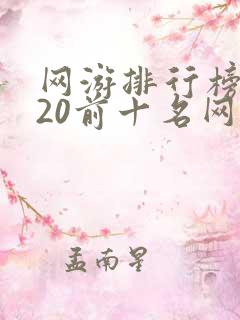 网游排行榜
20前十名网
孟南星